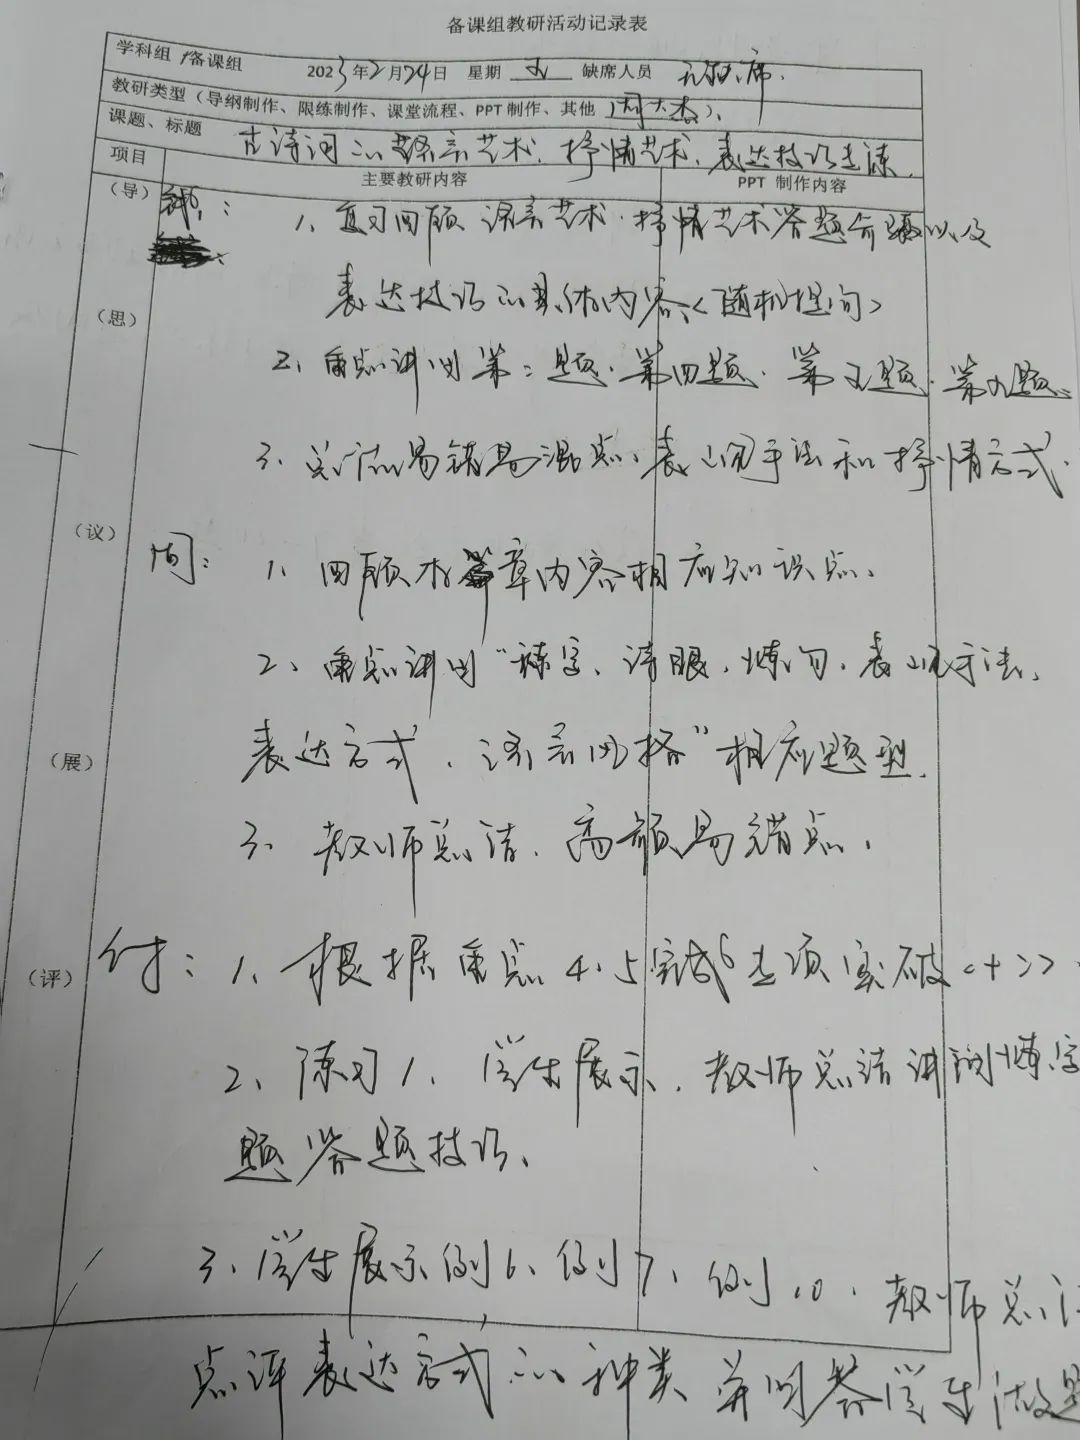 备课组教研活动记录表
学科组/备课组 2023年2月24日 星期五 缺席人员 无缺席.
教研类型（导纲制作、限练制作、课堂流程、PPT制作、其他
课题、标题 古诗词的语言艺术、抒情艺术、表达技巧专练.
项目 主要教研内容 PPT 制作内容
（导）
1、复习回顾 语言艺术·抒情艺术答题 以及
表达技巧的具体内容、<随机提问>
（思）
2、重点讲 第二题·第四题·第五题·第九题、
3、 易错易混点、表现手法和抒情方式.
（议）
周: 1、回顾本篇章内容相应知识点、
2、重点讲 "炼字、诗眼、炼句、表现手法、
表达方式、语言风格"相应题型.
（展）
3、教师总结、高频易错点、
（评）
付: 1、根据重点4、5完成专项突破<十二>
2、练习1、学生展示、教师总结讲 炼字
题答题技巧、
3、学生展示例6、例7、例10、教师总
点评表达方式的种类 并 学生做题